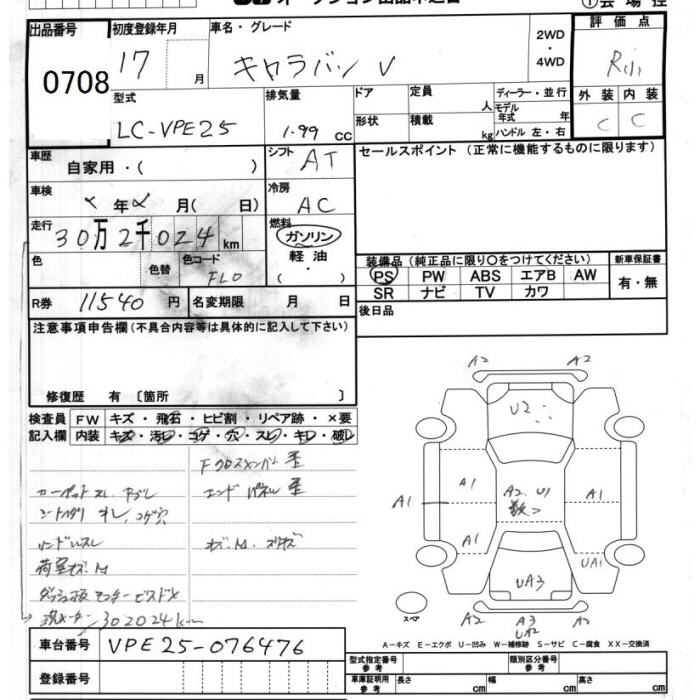 出品番号
0708
初度登録年月
17 月
車名・グレード
キャラバン V
2WD
・
4WD
評価点
R
外装 内装
C C
型式
LC-VPE25
排気量
1.99 cc
ドア
形状
定員 人
積載 kg
ディーラー・並行
モデル年式 年
ハンドル 左・右
車歴
自家用・( )
シフト
AT
セールスポイント (正常に機能するものに限ります)
車検
年 月( 日)
冷房
AC
走行
30万2千024 km
燃料
ガソリン
軽油
・
( )
色
色替
色コード
FL0
装備品 (純正品に限り〇をつけてください)
新車保証書
PS PW ABS エアB AW
SR ナビ TV カワ
有・無
R券 11540 円
名変期限 月 日
後日品
注意事項申告欄(不具合内容等は具体的に記入して下さい)
修復歴 有 [箇所 ]
検査員
記入欄
FW キズ・飛石・ヒビ割・リペア跡・×要
内装 キズ・汚レ・コゲ・穴・スレ・キレ・破レ
Fクロスメンバー 歪
カーペットスレ ヤブレ
エンドパネル 歪
シートヘタリ オレ、コゲ穴
ハンドルスレ
荷室キズ.M
302024km
A2 A2
U2
A1 A1
A2 U1
数つ
A1
A1
A1 UA1
UA3
スペア
A2 A3 A2
A-キズ E-エクボ U-凹み W-補修跡 S-サビ C-腐食 XX-交換済
車台番号
VPE25-076476
登録番号
型式指定番号
参考
類別区分番号
参考
車庫証明用
参考
長さ cm
幅 cm
高さ cm